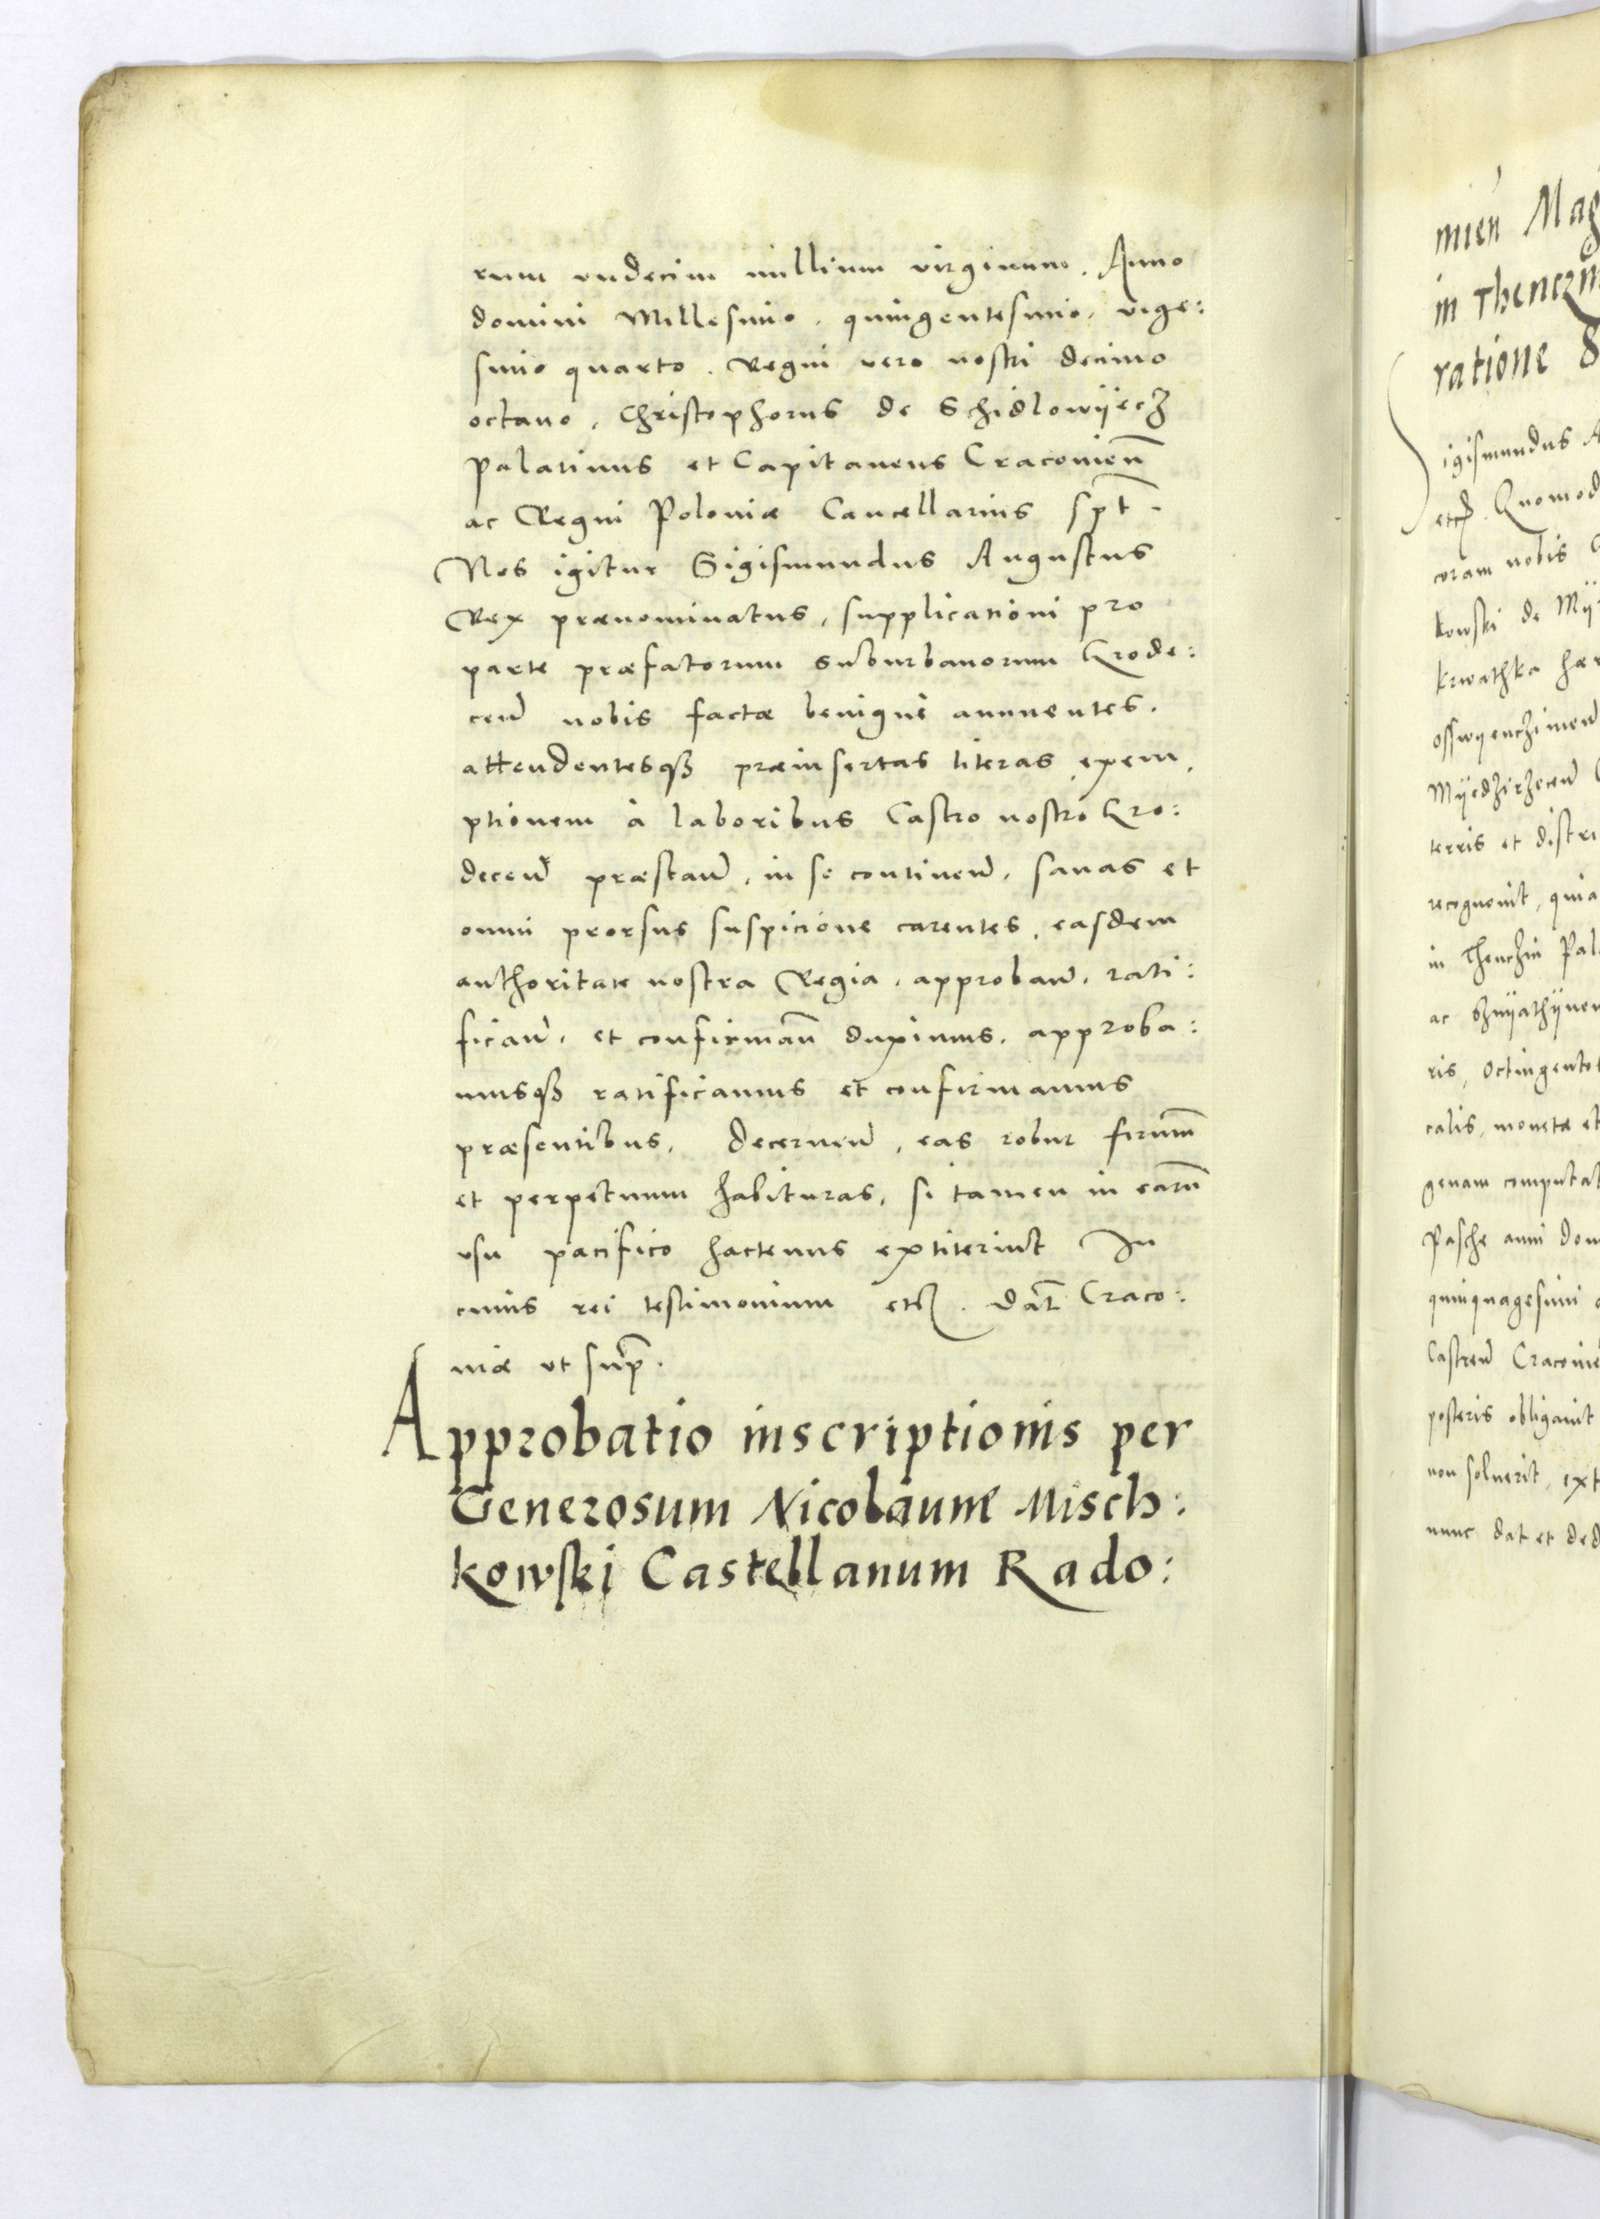 rum undecim millium virginum. Anno
domini Millesimo, quingentesimo, vige:
simo quarto. Regni vero nostri decimo
octavo. Christophorus de Schidlowijecz
Palatinus et Capitaneus Cracovien̄
ac Regni Poloniæ Cancellarius sp̄t.
Nos igitur Sigismundus Augustus
Rex prænominatus, supplicationi pro
parte præfatorum suburbanorum Grode:
cen̄ nobis factæ benigne annuentes.
attendentesqꝫ præinsertas literas exem,
ptionem à laboribus Castro nostro Gro:
decen̄ præstan̄, in se continen̄, sanas et
omni prorsus suspicione carentes, easdem
authoritate nostra Regia, approban̄, rati:
fican̄, et confirman̄ duximus, approba:
musqꝫ ratificamus et confirmamus
præsentibus, decernen̄, eas robur firmum̄
et perpetuum habituras, si tamen in earum̄
usu pacifico hactenus extiterint In
cuius rei testimonium etc. Dat̄ Craco:
viæ ut sup̄.
Approbatio inscriptionis per
Generosum Nicolaum Misch:
kowski Castellanum Rado:
mien̄ Mag
in Thenczin
ratione
igismundus A
etc. Quomod
coram nobis
kowski de Mij
krwathka hær
osswijenczimen̄
Mijedzirzecen̄
terris et distri
recognovit, quia
in Thenchin Pal
ac
ris, Octingento
calis, monetæ et
genam computat
Pasche anni dom
quinquagesimi
Castren̄ Cracovie
posteris obligavit
non solverit, ext
nunc dat et ded